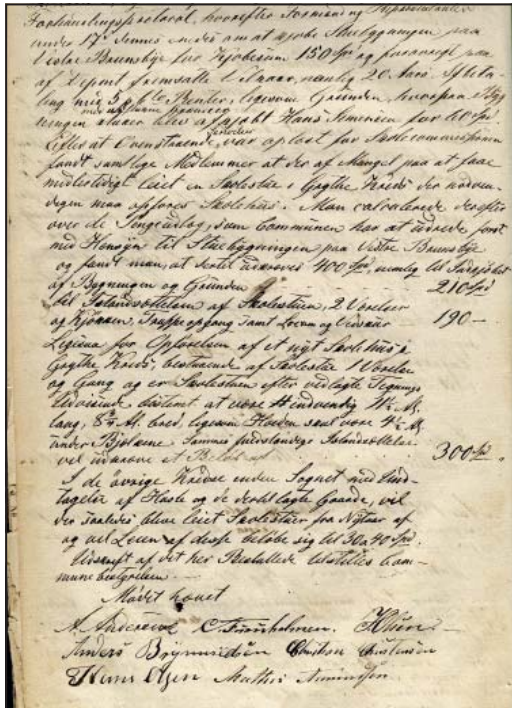 Forhandlingsprotocol, hvorefter Formand og Repræsentanter
under 17de dennes enedes om at kjøbe Stuebygningen paa
Vestre Brunsbye for Kjøbesum 150 Spd og forøvrigt paa
af Deponl fremsatte Vilkaar, nemlig 20 Aars Afbeta-
ling med 5 pCto Renter, ligesom Grunden, hvorpaa Byg-
ningen staaer blev afkjøbt Hans Simensen for 60 Spd
Efter at Ovenstaaende var oplæst for Skolecommissionen
fandt samtlige Medlemmer at der af Mangel paa at faae
midlertidigt leiet en Skolestue i Grythe Kreds der nødven-
digen maa opføres Skolehus. Man calculerede derefter
over de Pengeudlæg, som Communen har at udrede først
med Hensyn til Stuebygningen paa Vestre Brunsbye
og fandt man, at dertil udkræves 400 Spd, nemlig til Indkjøbet
af Bygningen og Grunden 210 Spd
til Istandsættelsen af Skolestuen, 2 Værelser
og Kjøkken, Trappeopgang samt Locum og Vedskuur 190 —
Ligesaa for Opførelsen af et nyt Skolehus i
Grythe Kreds, bestaaende af Skolestue 1 Værelse
og Gang og er Skolestuen efter vedlagte Tegnings
Udvisende bestemt at være indvendig
lang, bred, ligesom Høiden skal være
under Bjelkerne Sammes fuldstændige Istandsættelse
vil udkræve et Beløb af 300 Spd.
I de øvrige Kredse inden Sognet med Und-
tagelse af Hasle og de dertil lagte Gaarde, vil
der saaledes blive leiet Skolestuer fra Nytaar af
og vil Leien af disse beløbe sig til 30 a 40 Spd.
Udskrift af det her Besluttede tilstilles Com-
munebestyrelsen. —
Mødet hævet
A. C. Tronholmen.
Anders Brynmildsen Christian Christensen
Hans Olsen Mathis Amundsen